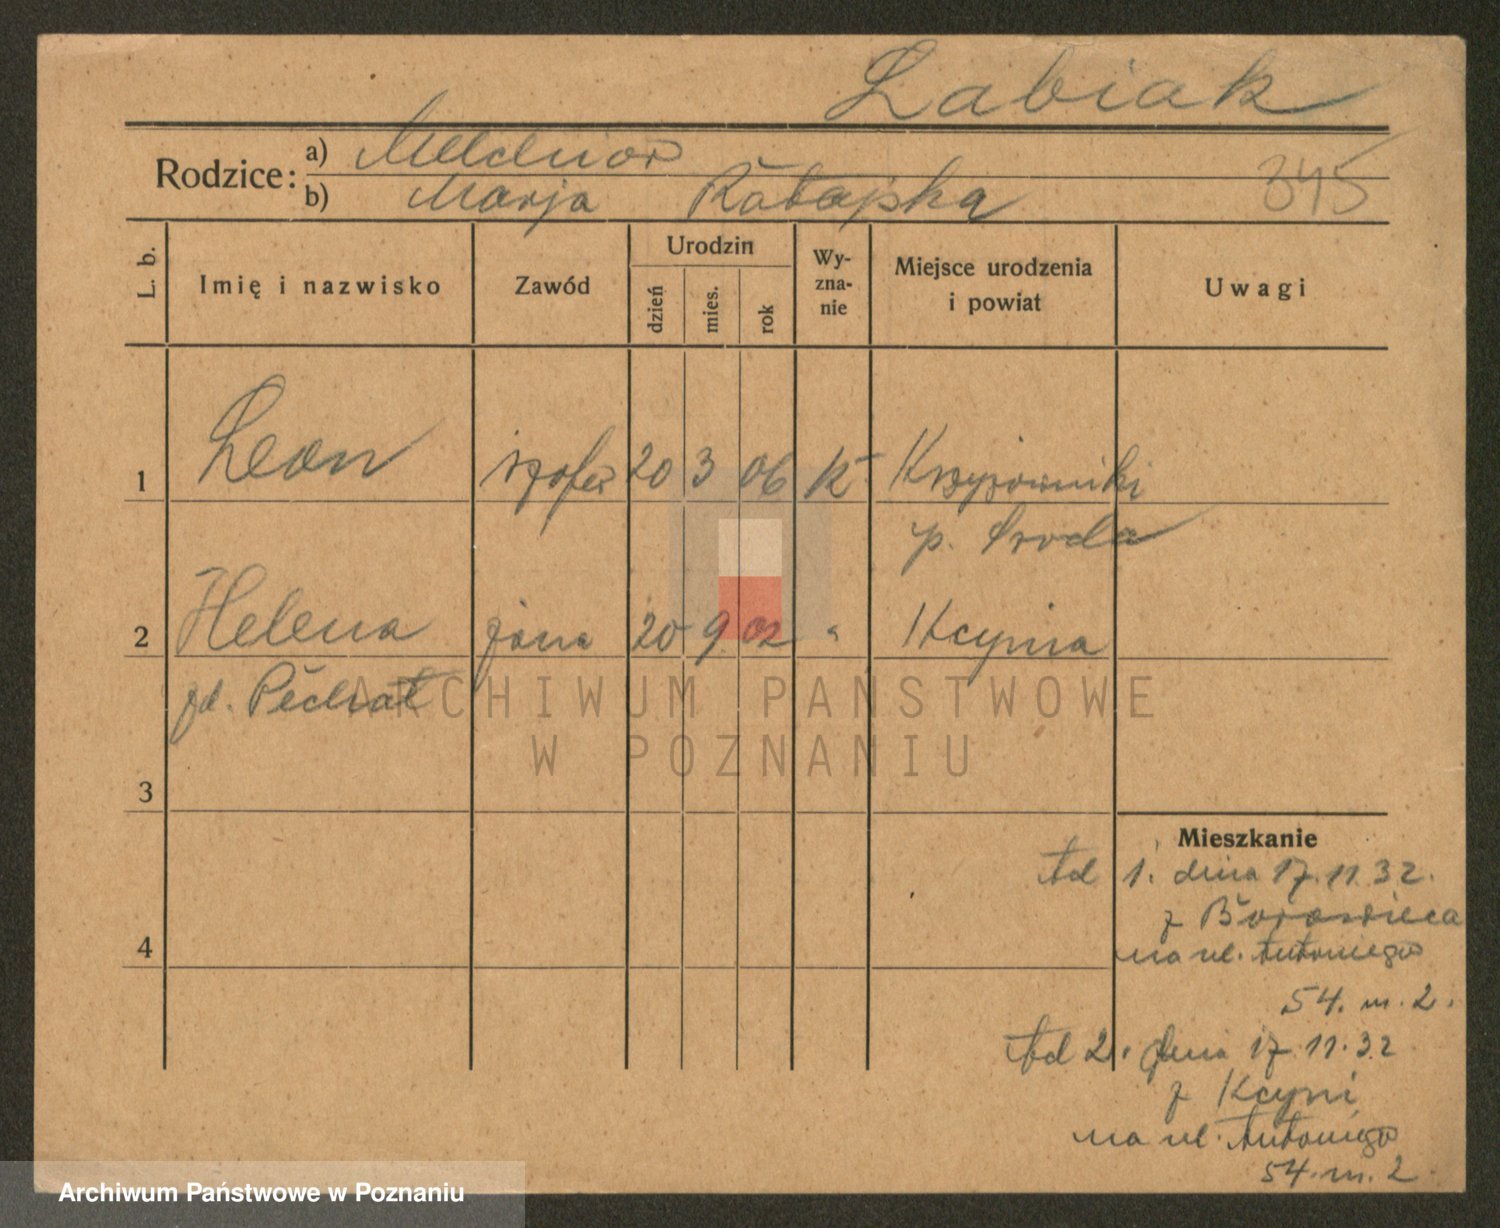 Łabiak
Rodzice: a) Melchior
b) Marja Ratajska
345
L. b. Imię i nazwisko Zawód Urodzin dzień mies. rok Wyznanie Miejsce urodzenia i powiat Uwagi
1 Leon szofer 20 3 06 k Krzyżowniki
p. Środa
2 Helena żona 20 9 02 " Kcynia
zd. Piechat
3
Mieszkanie
Ad 1. dnia 17.11.32.
z Borowieca
4
na ul. Antoniego
54. m. 2.
Ad 2. dnia 17.11.32
z Kcyni
na ul. Antoniego
54. m. 2.
ARCHIWUM PAŃSTWOWE
W POZNANIU
Archiwum Państwowe w Poznaniu